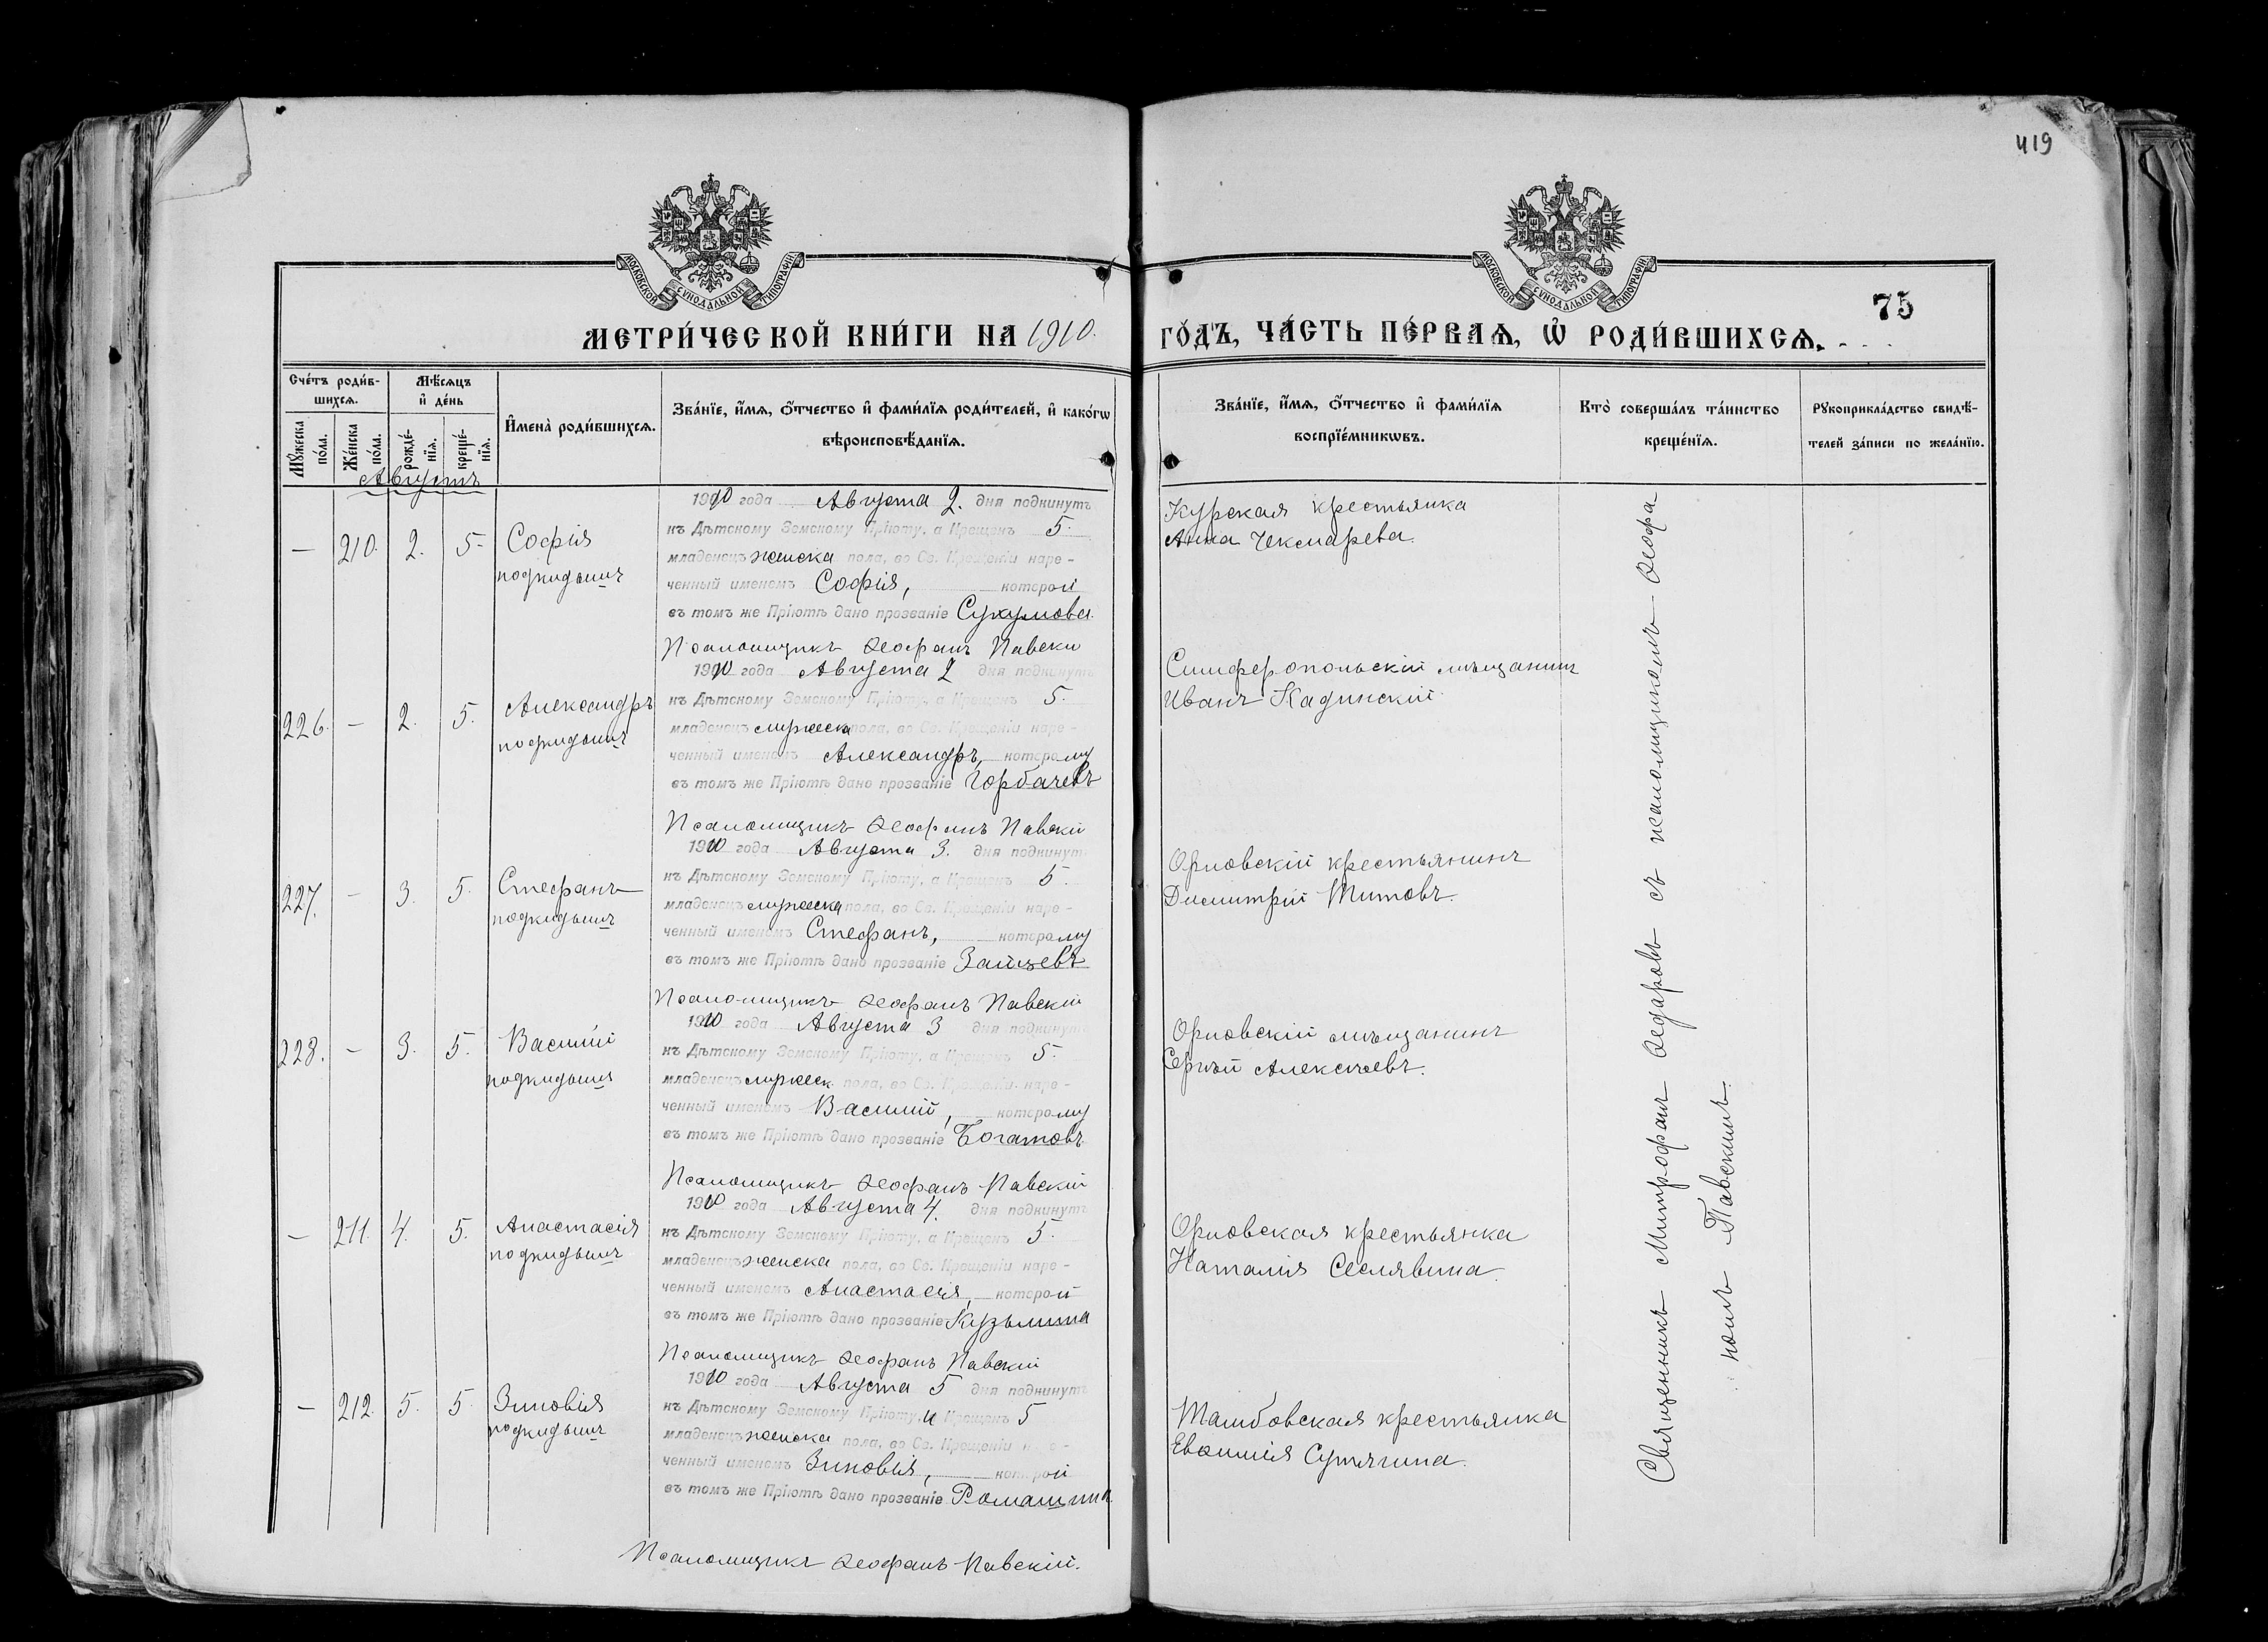 419
МОСКОВСКОЙ СѴНОДАЛЬНОЙ ТИПОГРАФІИ
МОСКОВСКОЙ СѴНОДАЛЬНОЙ ТИПОГРАФІИ
75
МЕТРИ́ЧЕСКОЙ КНИ́ГИ НА 1910. ГО́ДЪ, ЧА́СТЬ ПЕ́РВАѦ, Ѡ҆ РОДИ́ВШИХСѦ.
Сче́тъ роди́вшихсѧ.
Мѣ́сѧцъ и҆ де́нь
Мꙋ́жеска по́ла.
Же́нска по́ла.
рожде́нїѧ.
креще́нїѧ.
И҆мена̀ роди́вшихсѧ.
Зва́нїе, и҆́мѧ, ѻ҆́тчество и҆ фами́лїѧ роди́телей, и҆ како́гѡ
вѣроисповѣ́данїѧ.
Зва́нїе, и҆́мѧ, ѻ҆́тчество и҆ фами́лїѧ
воспрїе́мникѡвъ.
Кто̀ соверша́лъ та́инство
креще́нїѧ.
Рꙋкоприкла́дство свидѣ́-
телей за́писи по жела́нїю.
Августъ
— 210. 2. 5. Софія
подкидышъ
1910 года Августа 2. дня подкинутъ
къ Дѣтскому Земскому Пріюту, а Крещенъ 5.
младенецъ женска пола, во Св. Крещеніи наре-
ченный именемъ Софія, которой
въ томъ же Пріютѣ дано прозваніе Сухумова.
Псаломщикъ Ѳеофанъ Павски
Курская крестьянка
Анна Чекмарева.
226. — 2. 5. Александръ
подкидышъ
1910 года Августа 2 дня подкинутъ
къ Дѣтскому Земскому Пріюту, а Крещенъ 5.
младенецъ мужеска пола, во Св. Крещеніи наре-
ченный именемъ Александръ, которому
въ томъ же Пріютѣ дано прозваніе Горбачевъ
Псаломщикъ Ѳеофанъ Павскій
Симферопольскій мѣщанинъ
Иванъ Кадинскій.
227. — 3. 5. Стефанъ
подкидышъ
1910 года Августа 3. дня подкинутъ
къ Дѣтскому Земскому Пріюту, а Крещенъ 5.
младенецъ мужеска пола, во Св. Крещеніи наре-
ченный именемъ Стефанъ, которому
въ томъ же Пріютѣ дано прозваніе Зайцевъ
Псаломщикъ Ѳеофанъ Павскій
Орловскій крестьянинъ
Димитрій Титовъ.
228. — 3. 5. Василій
подкидышъ
1910 года Августа 3 дня подкинутъ
къ Дѣтскому Земскому Пріюту, а Крещенъ 5.
младенецъ мужеск. пола, во Св. Крещеніи наре-
ченный именемъ Василій, которому
въ томъ же Пріютѣ дано прозваніе Богатовъ
Псаломщикъ Ѳеофанъ Павскій
Орловскій мѣщанинъ
Сергѣй Алексѣевъ.
— 211. 4. 5. Анастасія
подкидышъ
1910 года Августа 4. дня подкинутъ
къ Дѣтскому Земскому Пріюту, а Крещенъ 5.
младенецъ женска пола, во Св. Крещеніи наре-
ченный именемъ Анастасія, которой
въ томъ же Пріютѣ дано прозваніе Кузьмина
Псаломщикъ Ѳеофанъ Павскій
Орловская крестьянка
Наталія Сеслявина.
— 212. 5. 5. Зиновія
подкидышъ
1910 года Августа 5 дня подкинутъ
къ Дѣтскому Земскому Пріюту, и Крещенъ 5
младенецъ женска пола, во Св. Крещеніи наре-
ченный именемъ Зиновія, которой
въ томъ же Пріютѣ дано прозваніе Ромашина.
Псаломщикъ Ѳеофанъ Павскій.
Тамбовская крестьянка
Евѳимія Сутягина.
Священникъ Митрофанъ Ѳедоровъ съ псаломщикомъ Ѳеофа
номъ Павскимъ.